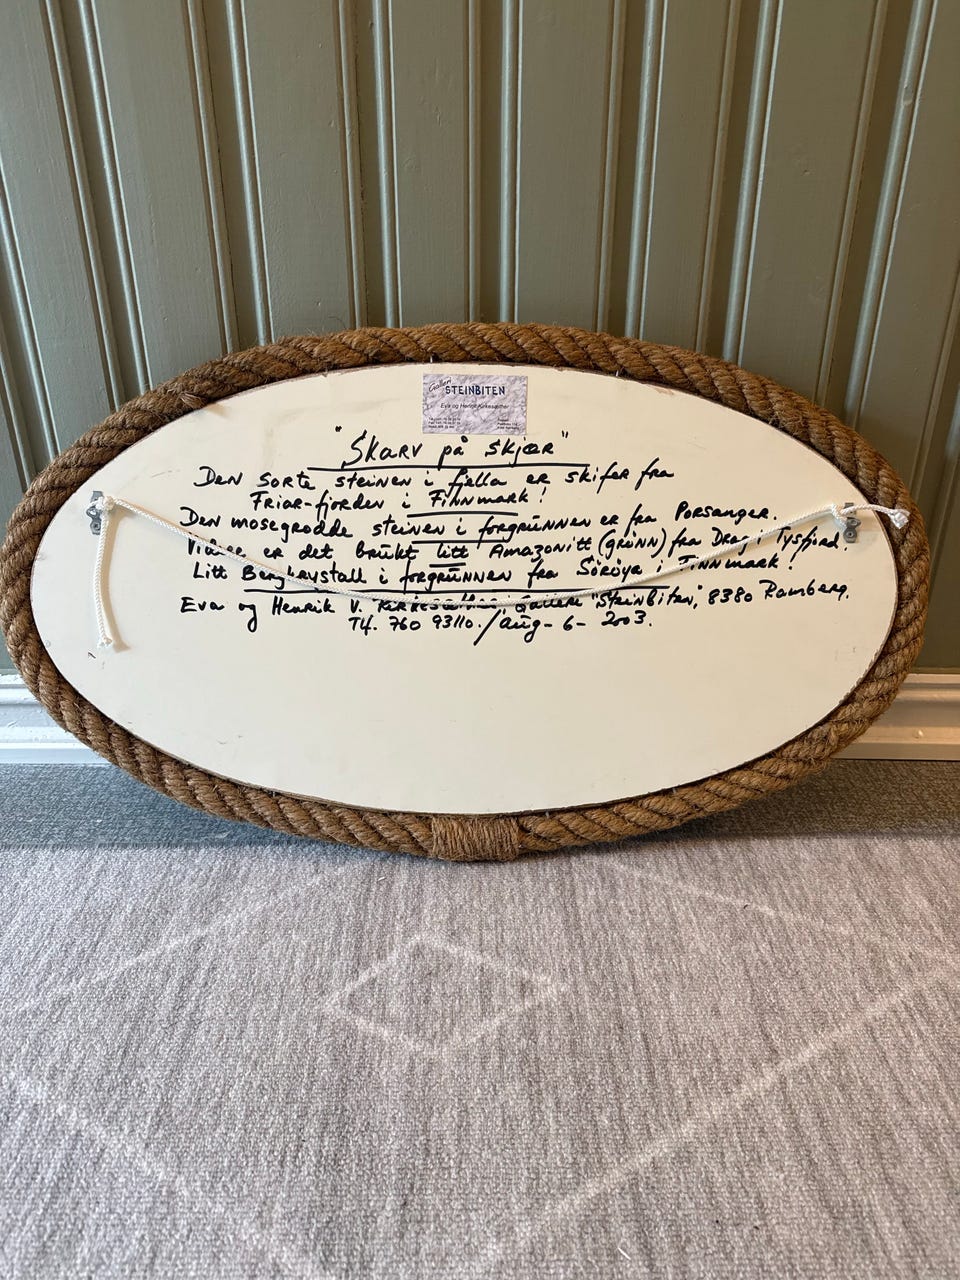 Galleri
STEINBITEN
Eva og Henrik Kirkesæther
"Skarv på skjær"
Den sorte steinen i fjella er skifer fra
Friar-fjorden i Finnmark!
Den mosegrodde steinen i forgrunnen er fra Porsanger.
Videre er det brukt litt Amazonitt (grønn) fra Drag i Tysfjord.
Litt Bergkrystall i forgrunnen fra Sörøya i Finnmark!
Eva og Henrik V. Kirkesæther, Galleri "Steinbiten," 8380 Ramberg.
Tlf. 760 93110./aug-6-2003.